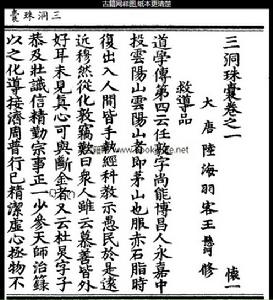 古籍网祥图,纸本更清楚
三洞珠囊
三洞珠囊卷之一 懷一
大唐陸海羽客王懸河修
救導品
道學傳第四云任敦字尚能博昌人永嘉中
投雲陽山雲陽山者即茅山也服赤石脂時
復出入人間皆手執經科教示愚民於是遠
近穆然從化敦竊歎曰衆人雖云慕善皆外
好耳未見真心可與斷金者又云杜炅字子
恭及壯識信精勤宗事正一少參天師治籙
以之化導接濟周普行已精潔虛心拯物不